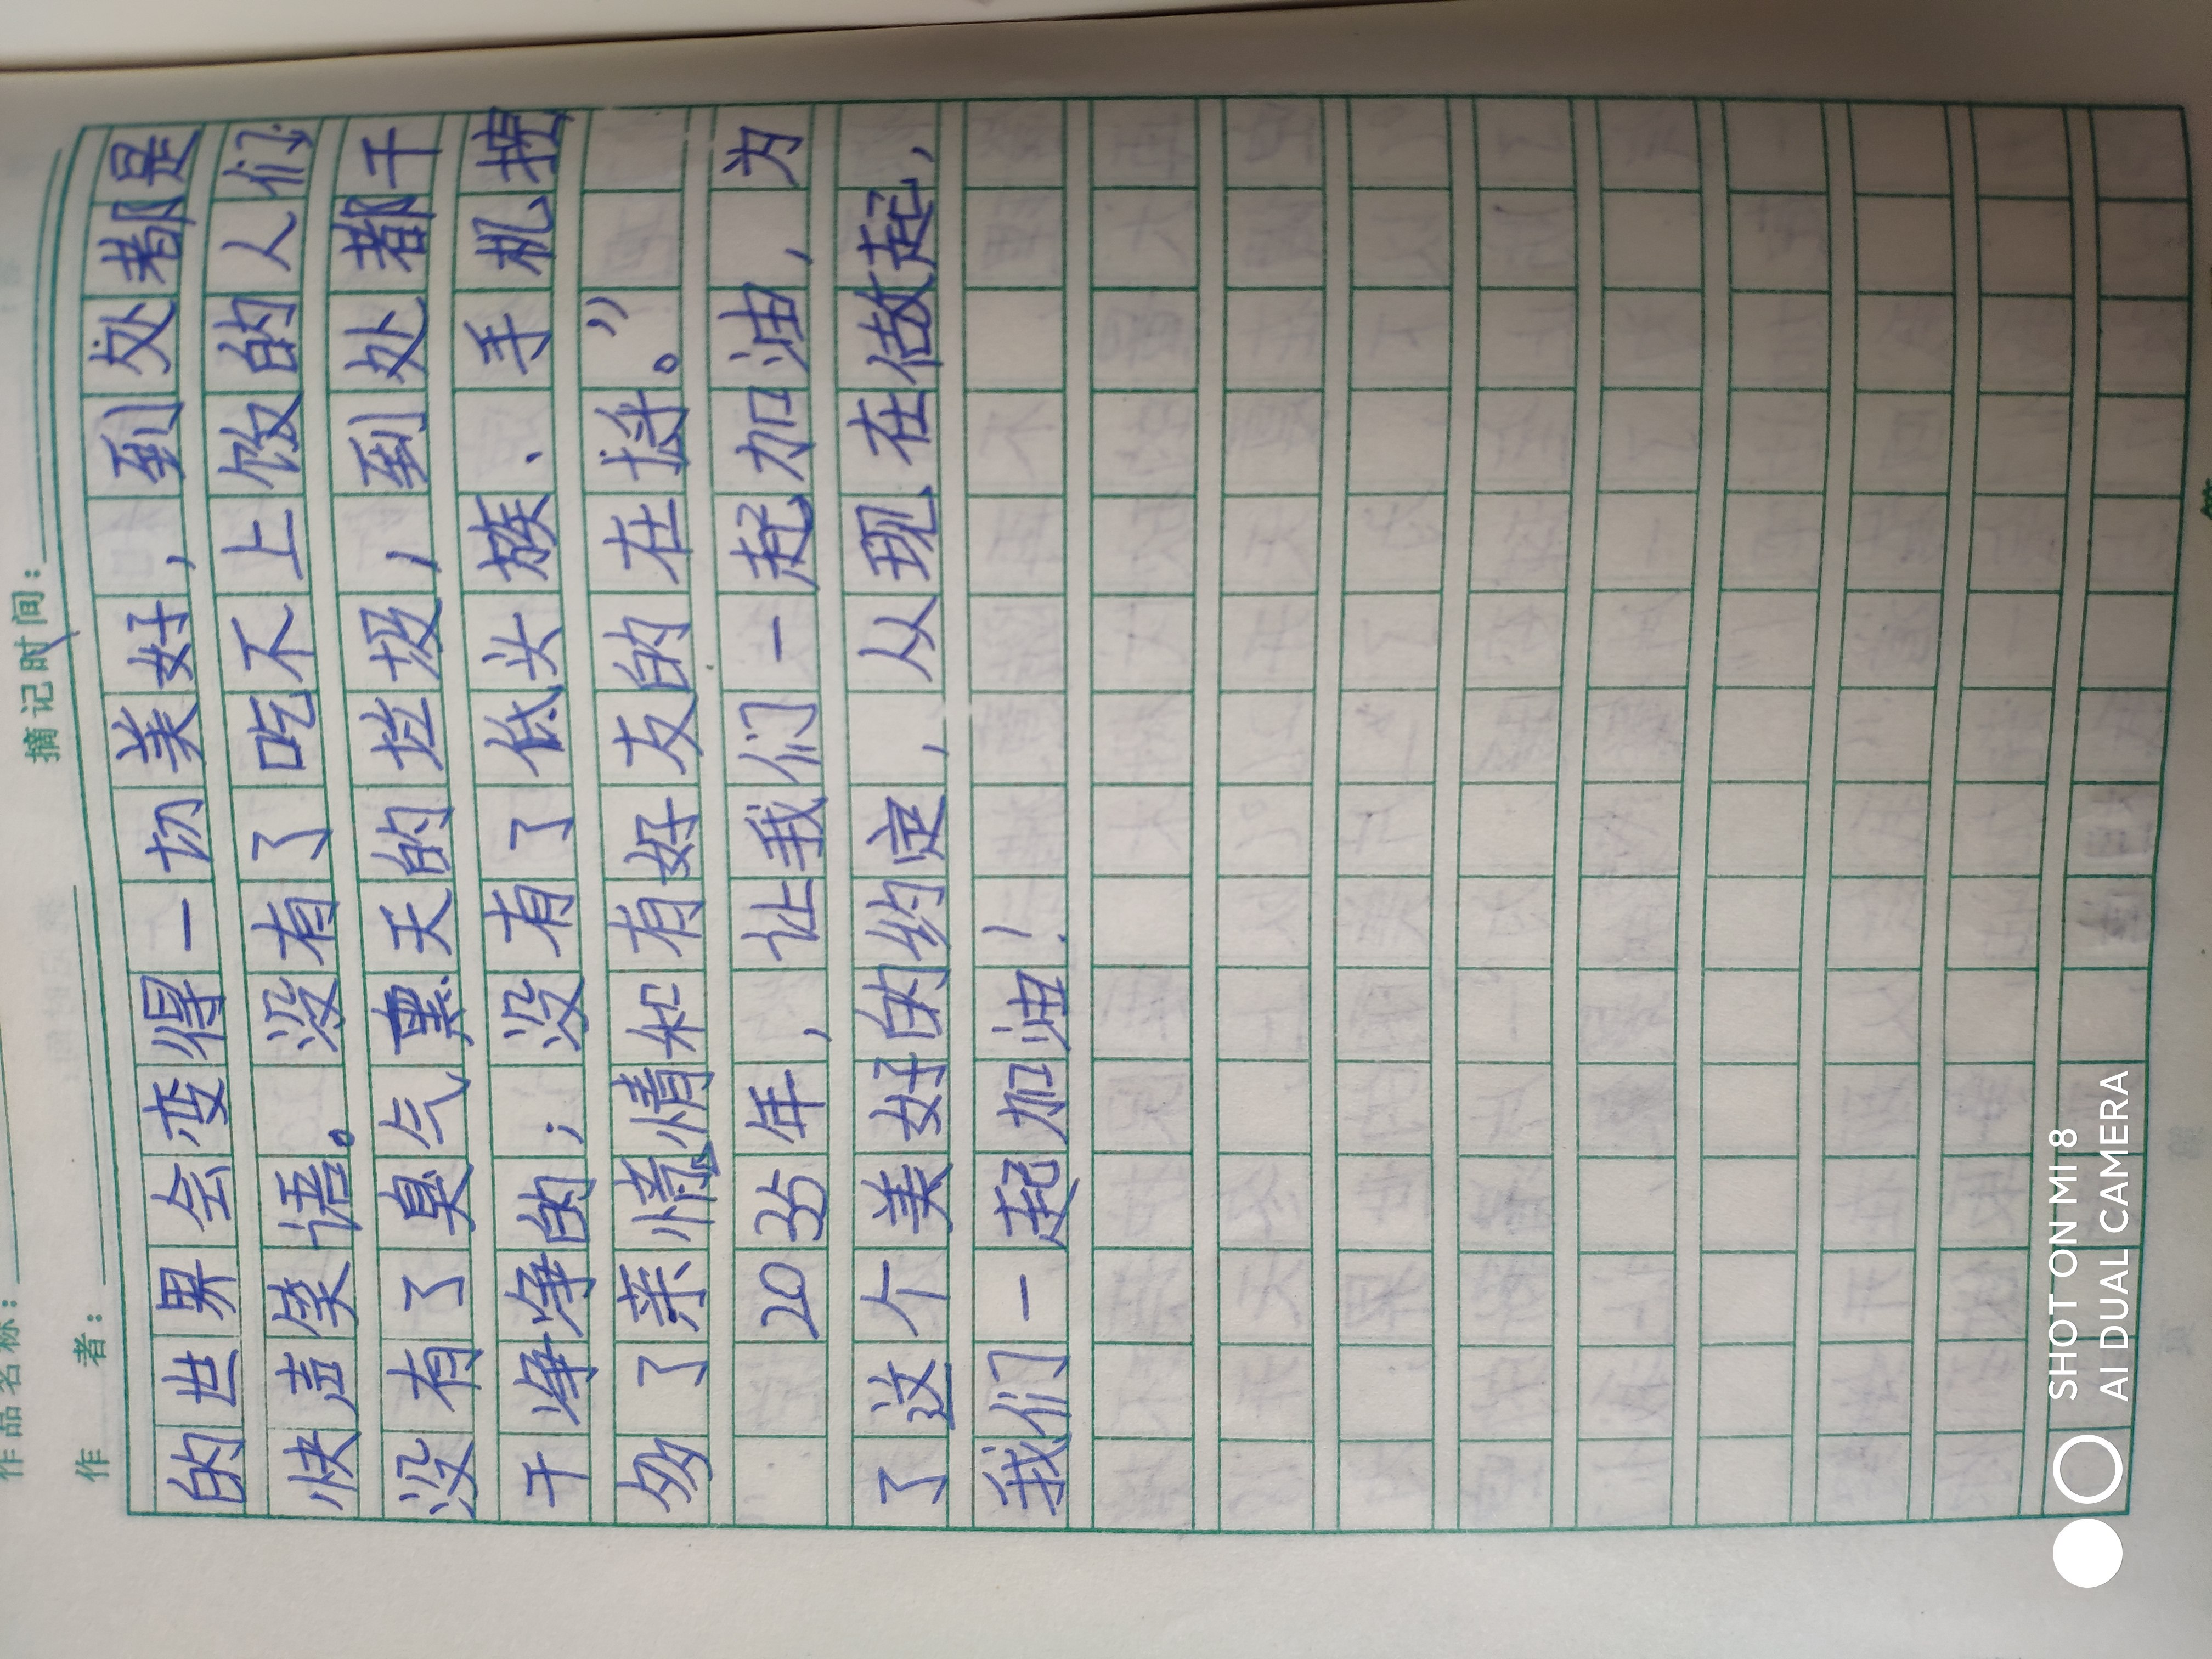 作品名称：
摘记时间：
作 者：
的世界会变得一切美好，到处都是
快声笑语。没有了吃不上饭的人们，
没有了臭气熏天的垃圾，到处都干
干净净的；没有了低头族、手机控
多了亲情和有好友的在乎。”
2035年，让我们一起加油，为
了这个美好的约定，从现在做起，
我们一起加油！
SHOT ON MI 8
AI DUAL CAMERA